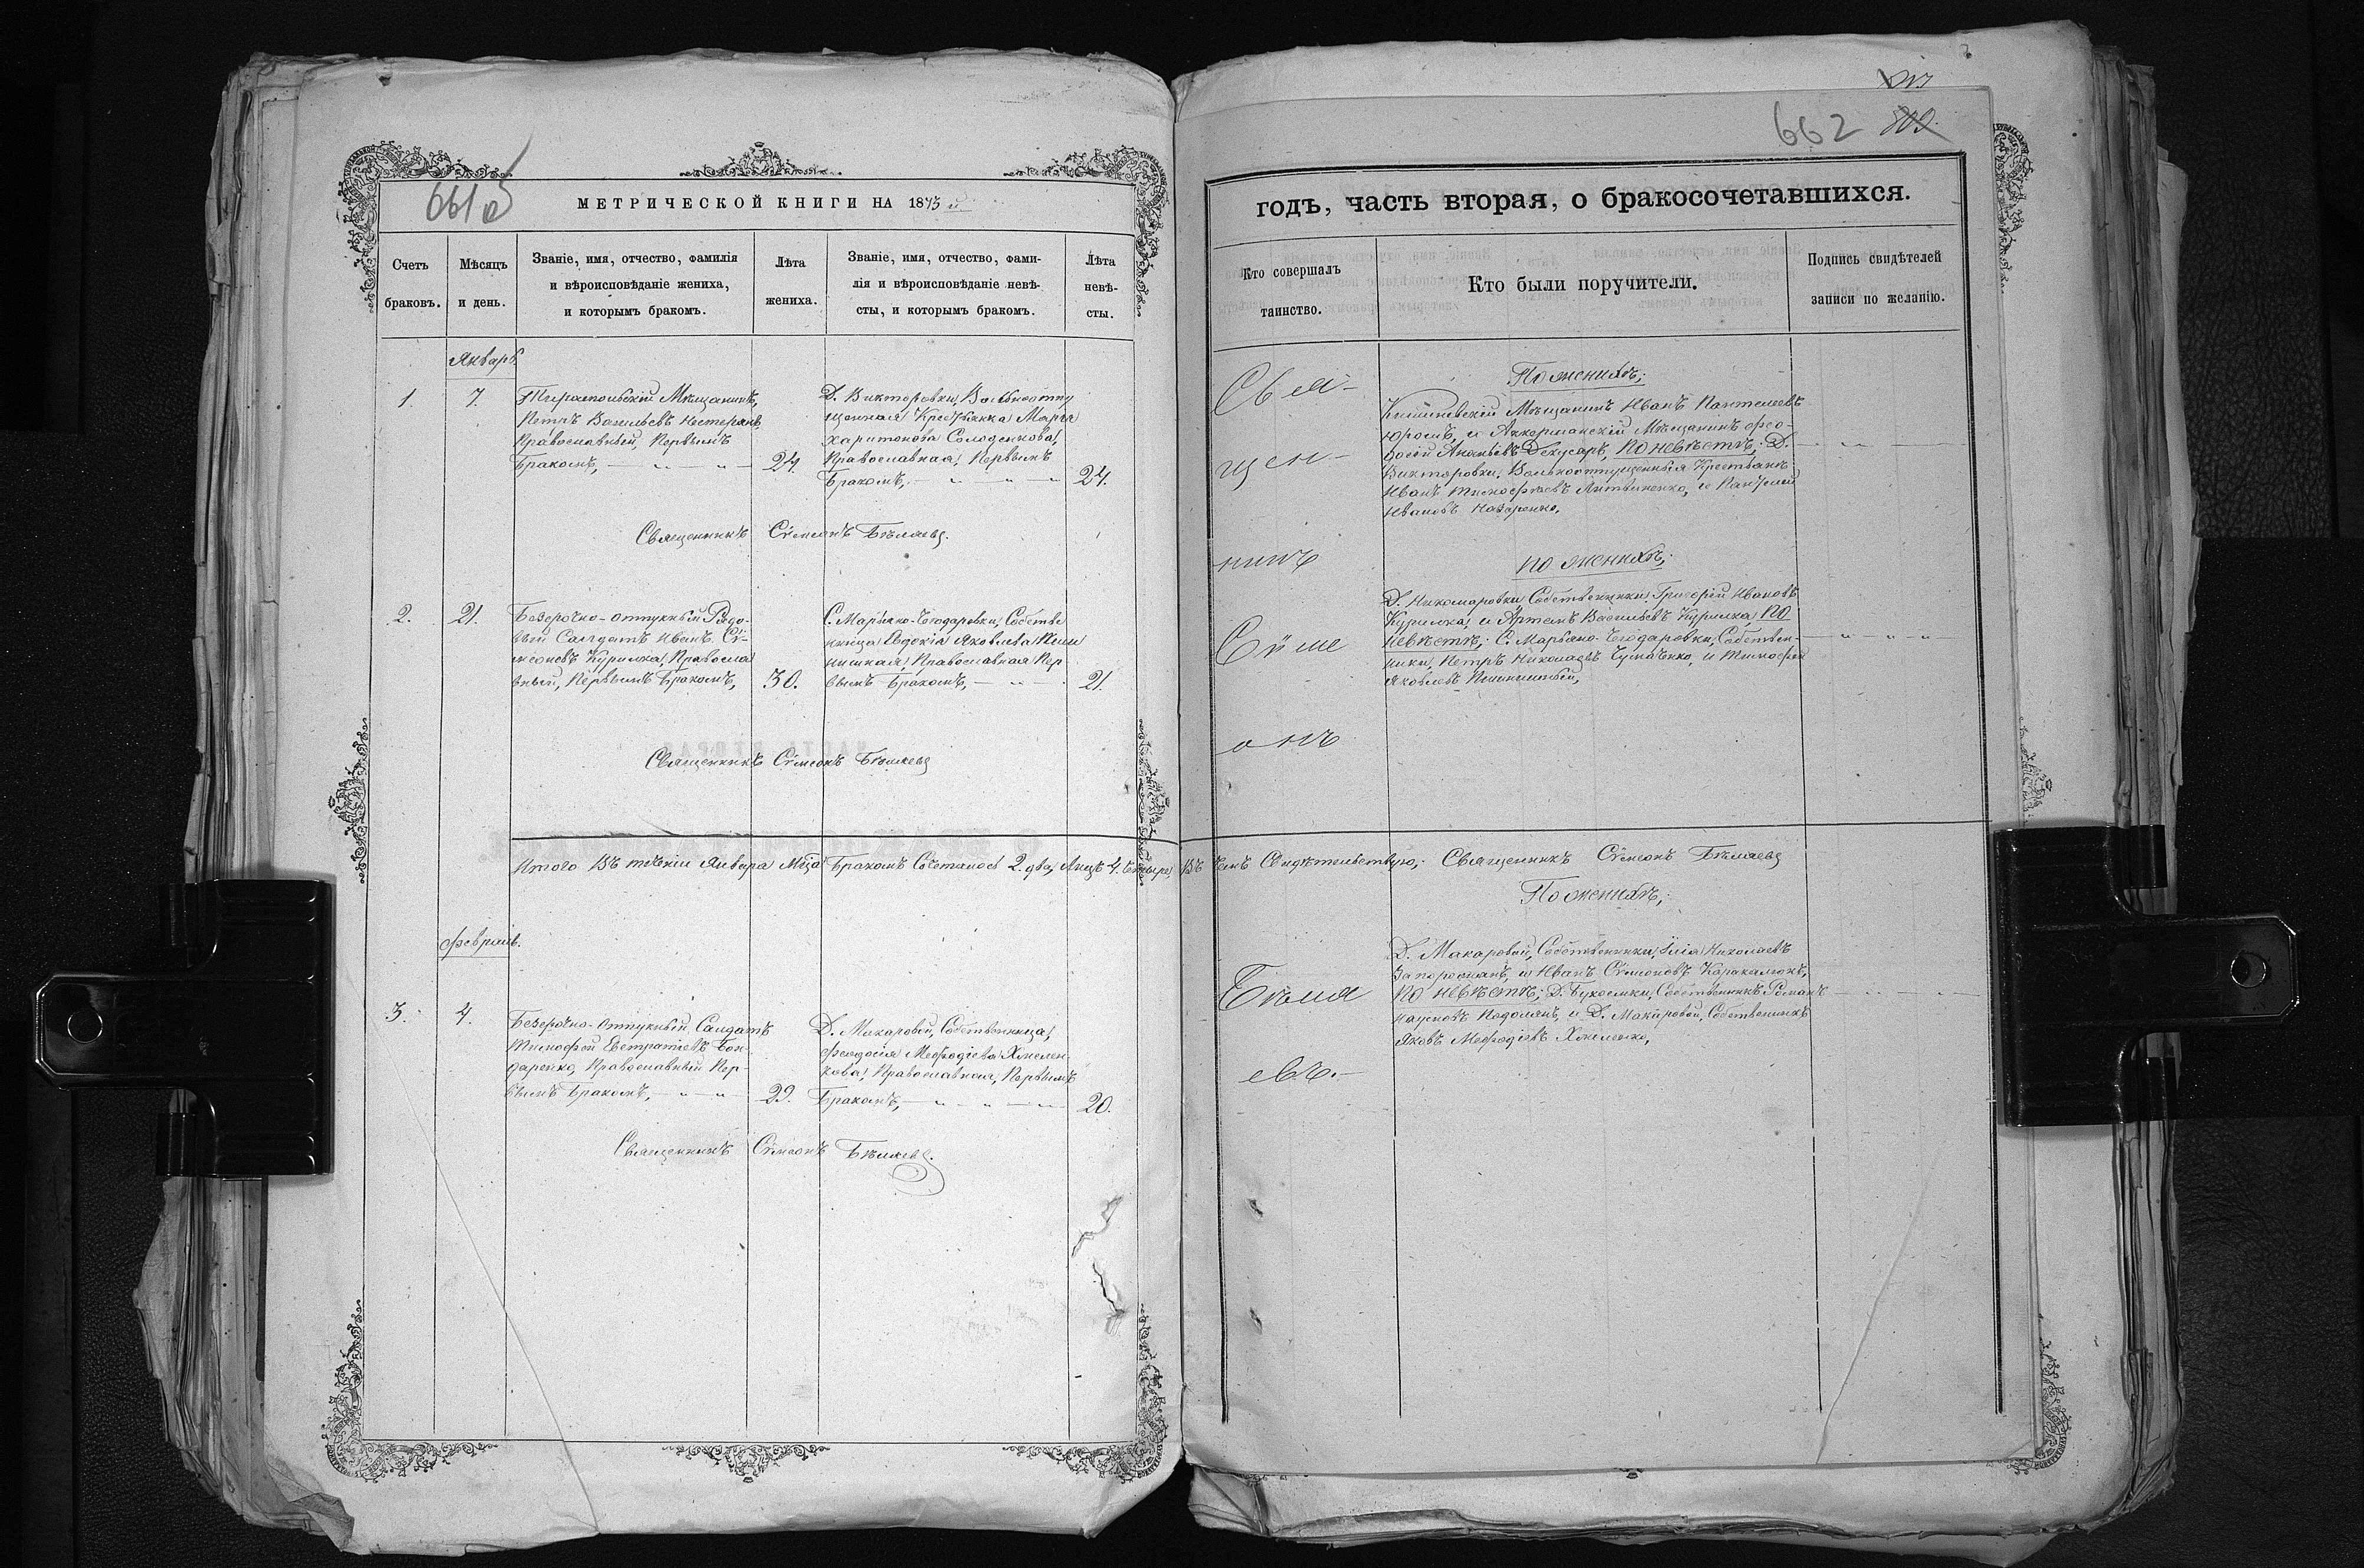 661 об
МЕТРИЧЕСКОЙ КНИГИ НА 1873 й
Счетъ браковъ.
Мѣсяцъ и день.
Званіе, имя, отчество, фамилія
и вѣроисповѣданіе жениха,
и которымъ бракомъ.
Лѣта
жениха.
Званіе, имя, отчество, фами-
лія и вѣроисповѣданіе невѣ-
сты, и которымъ бракомъ.
Лѣта
невѣ-
сты.
Январь
1.
7.
Тираспольскій Мѣщанинъ,
Петръ Васильевъ Нестеракъ,
Православный, Первымъ
Бракомъ,
24.
Д. Викторовки, Вольноотпу
щенная Крестьянка Марѳа
Харитонова Солоденкова,
Православная, Первымъ
Бракомъ,
24.
Священникъ Сѵмеонъ Бѣляевъ.
2.
21.
Безсрочно-отпускный Рядо-
вый Салдатъ Иванъ Сѵ-
меоновъ Курилка, Правосла
вный, Первымъ Бракомъ,
30.
С. Марьяно-Чегодаровки, Собстве
нница Евдокія Яковлева
Православная Пер
вымъ Бракомъ,
21.
Священникъ Сѵмеонъ Бѣляевъ
Итого Въ теченіи Января Мѣца Бракомъ Сочеталось 2. два, Лицъ 4. Четыре, Въ чемъ Свидѣтельствую, Священникъ Сѵмеонъ Бѣляевъ
Февраль.
3.
4.
Безсрочно-отпускный Салдатъ
Тимофей Евстратіевъ Бон-
даренко, Православный Пер-
вымъ Бракомъ,
29.
Д. Макаровой, Собственница,
Феодосія Меѳодіева Хмелен
кова, Православная, Первымъ
Бракомъ,
20.
Священникъ Сѵмеонъ Бѣляевъ.
662 809.
годъ, часть вторая, о бракосочетавшихся.
Кто совершалъ
таинство.
Кто были поручители.
Подпись свидѣтелей
записи по желанію.
Свя-
щен-
никъ
Сѵме
онъ
Бѣля
евъ.-
По женихѣ;
Кишиневскій Мѣщанинъ Иванъ Пантелеевъ
и Аккерманскій Мѣщанинъ Фео-
досій Ананьевъ Декусаръ, По невѣстѣ; Д.
Викторовки, Вольноотпущенныя Крестьяне
Иванъ Тимофѣевъ Литвиненко, и Пантелей
Ивановъ Назаренко,
по женихѣ;
Д. Никомаровки Собственники, Григорій Ивановъ
Курилка, и Артемъ Васильевъ Курилка, По
невѣстѣ; С. Марьяно-Чегодаровки, Собствен-
ники, Петръ Николаевъ Чумаченко, и Тимофей
Яковлевъ
По женихѣ;
Д. Макаровой, Собственники, Илія Николаевъ
Запорожанъ, и Иванъ Сѵмеоновъ Каракалюкъ,
По невѣстѣ; Д. Буковики, Собственникъ Романъ
Наумовъ Подолянъ, и Д. Макаровой, Собственникъ
Яковъ Меѳодіевъ Хмиленко,